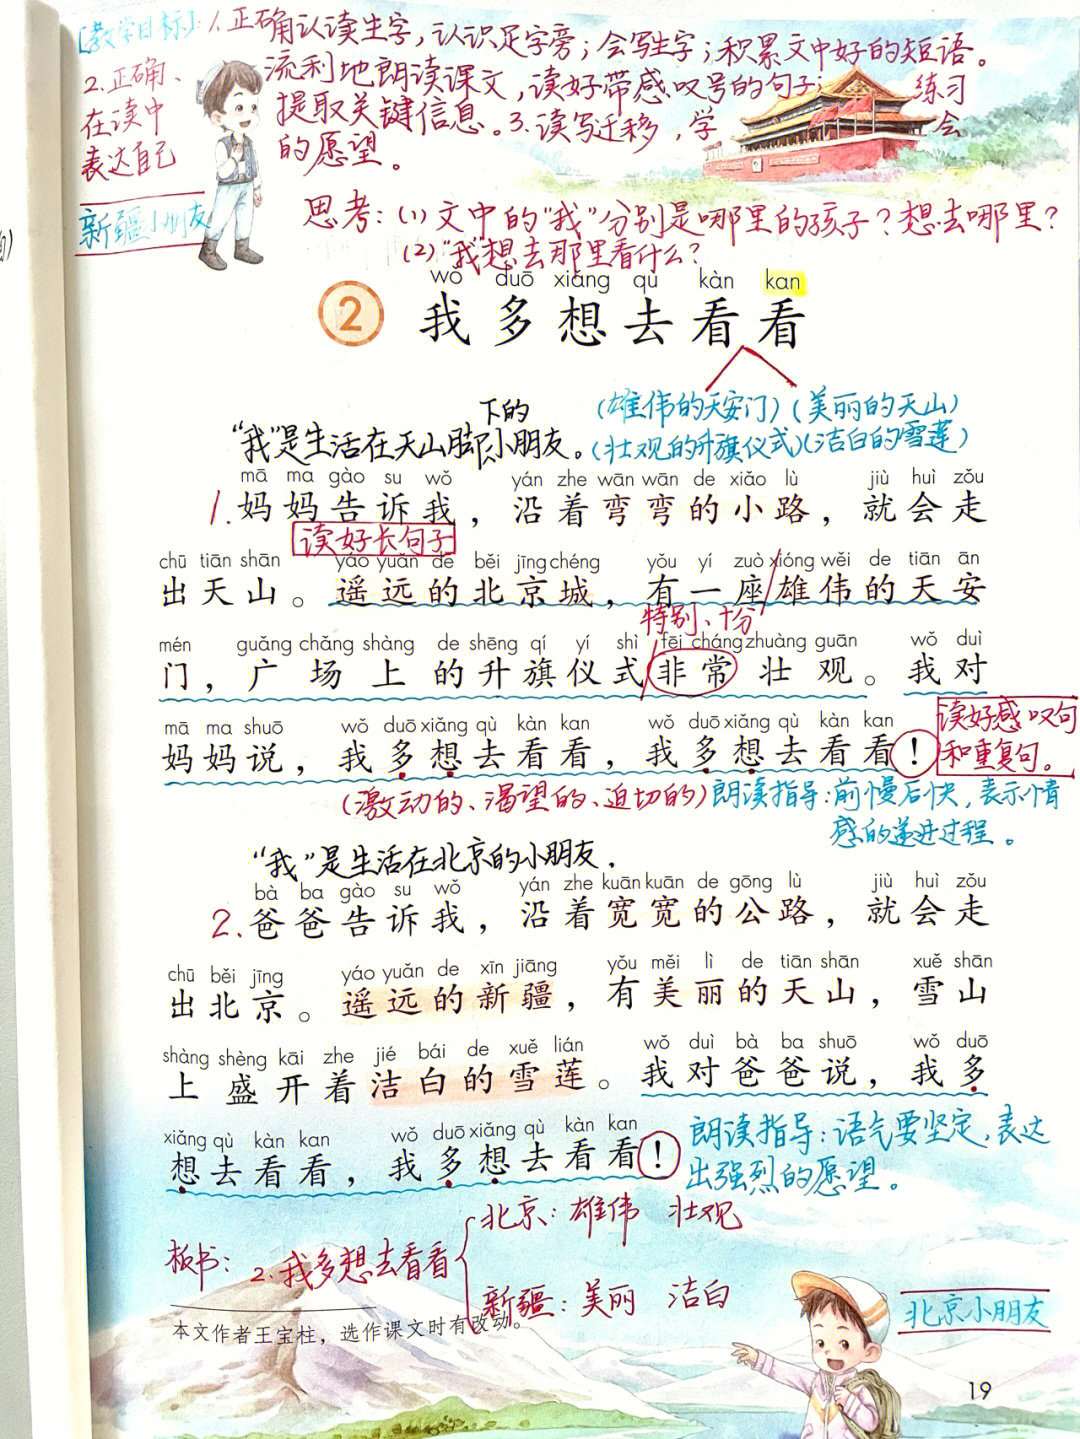 [教学目标]：1.正确认读生字，认识足字旁；会写生字；积累文中好的短语。
2.正确、流利地朗读课文，读好带感叹号的句子；练习
在读中提取关键信息。3.读写迁移，学会
表达自己的愿望。
新疆小朋友
思考：(1)文中的"我"分别是哪里的孩子？想去哪里？
(2)"我"想去那里看什么？
wǒ duō xiǎng qù kàn kan
2 我多想去看看
(雄伟的天安门)(美丽的天山)
(壮观的升旗仪式)(洁白的雪莲)
"我"是生活在天山脚下的小朋友。
mā ma gào su wǒ yán zhe wān wān de xiǎo lù jiù huì zǒu
1.妈妈告诉我，沿着弯弯的小路，就会走
读好长句子
chū tiān shān yáo yuǎn de běi jīng chéng yǒu yí zuò xióng wěi de tiān ān
出天山。遥远的北京城，有一座雄伟的天安
特别、十分
mén guǎng chǎng shàng de shēng qí yí shì fēi cháng zhuàng guān wǒ duì
门，广场上的升旗仪式非常壮观。我对
mā ma shuō wǒ duō xiǎng qù kàn kan wǒ duō xiǎng qù kàn kan
妈妈说，我多想去看看，我多想去看看！
读好感叹句
和重复句。
(激动的、渴望的、迫切的)朗读指导：前慢后快，表示情
感的递进过程。
"我"是生活在北京的小朋友.
bà ba gào su wǒ yán zhe kuān kuān de gōng lù jiù huì zǒu
2.爸爸告诉我，沿着宽宽的公路，就会走
chū běi jīng yáo yuǎn de xīn jiāng yǒu měi lì de tiān shān xuě shān
出北京。遥远的新疆，有美丽的天山，雪山
shàng shèng kāi zhe jié bái de xuě lián wǒ duì bà ba shuō wǒ duō
上盛开着洁白的雪莲。我对爸爸说，我多
xiǎng qù kàn kan wǒ duō xiǎng qù kàn kan
想去看看，我多想去看看！
朗读指导：语气要坚定，表达
出强烈的愿望。
北京：雄伟 壮观
板书：2.我多想去看看
新疆：美丽 洁白
本文作者王宝柱，选作课文时有改动。
北京小朋友
19